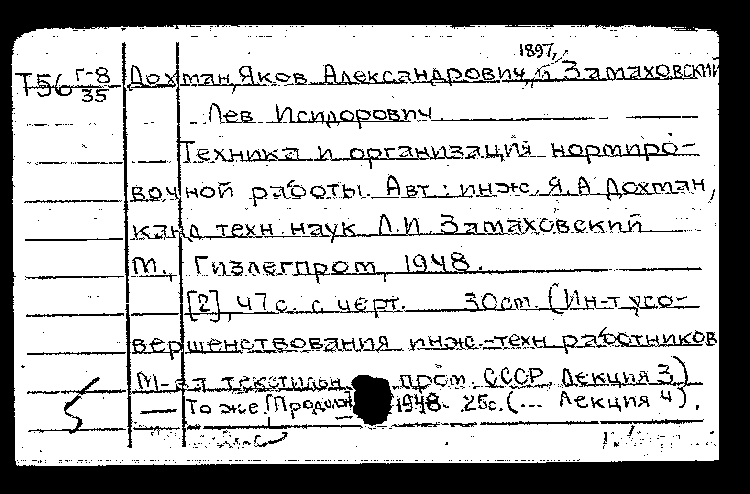 1897,
Т56 Г-8/35 Дохман, Яков Александрович, и Замаховский
Лев Исидорович
Техника и организация нормиро-
вочной работы. Авт: инж. Я. А Дохман,
канд техн. наук Л.И Замаховский
М., Гизлегпром, 1948.
[2], 47с. с черт. 30см. (Ин-т усо-
вершенствования инж.-техн работников
М-ва текстильн пром. СССР Лекция 3)
— То же. [Продолж 1948. 25с. (... Лекция 4).
5